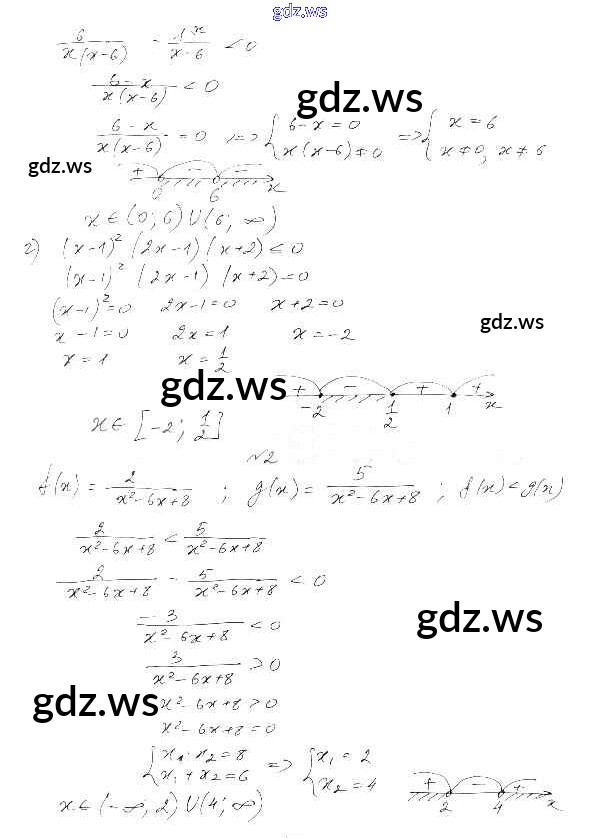 gdz.ws
6/(x(x-6)) - 1^x/(x-6) < 0
(6-x)/(x(x-6)) < 0
gdz.ws
(6-x)/(x(x-6)) = 0 => { 6-x=0 x(x-6)≠0 => { x=6 x≠0, x≠6
gdz.ws
+ - - 0 6 x
x∈(0;6)∪(6;∞)
2) (x-1)²(2x-1)(x+2)≤0
(x-1)²(2x-1)(x+2)=0
(x-1)²=0 2x-1=0 x+2=0
gdz.ws
x-1=0 2x=1 x=-2
x=1 x=1/2
gdz.ws
+ - + + -2 1/2 1 x
x∈[-2; 1/2]
№2
f(x)=2/(x²-6x+8) ; g(x)=5/(x²-6x+8) ; f(x)<g(x)
2/(x²-6x+8) < 5/(x²-6x+8)
2/(x²-6x+8) - 5/(x²-6x+8) < 0
-3/(x²-6x+8) < 0
gdz.ws
3/(x²-6x+8) > 0
gdz.ws
x²-6x+8>0
x²-6x+8=0
{ x₁·x₂=8 x₁+x₂=6 => { x₁=2 x₂=4
+ - + 2 4 x
x∈(-∞;2)∪(4;∞)